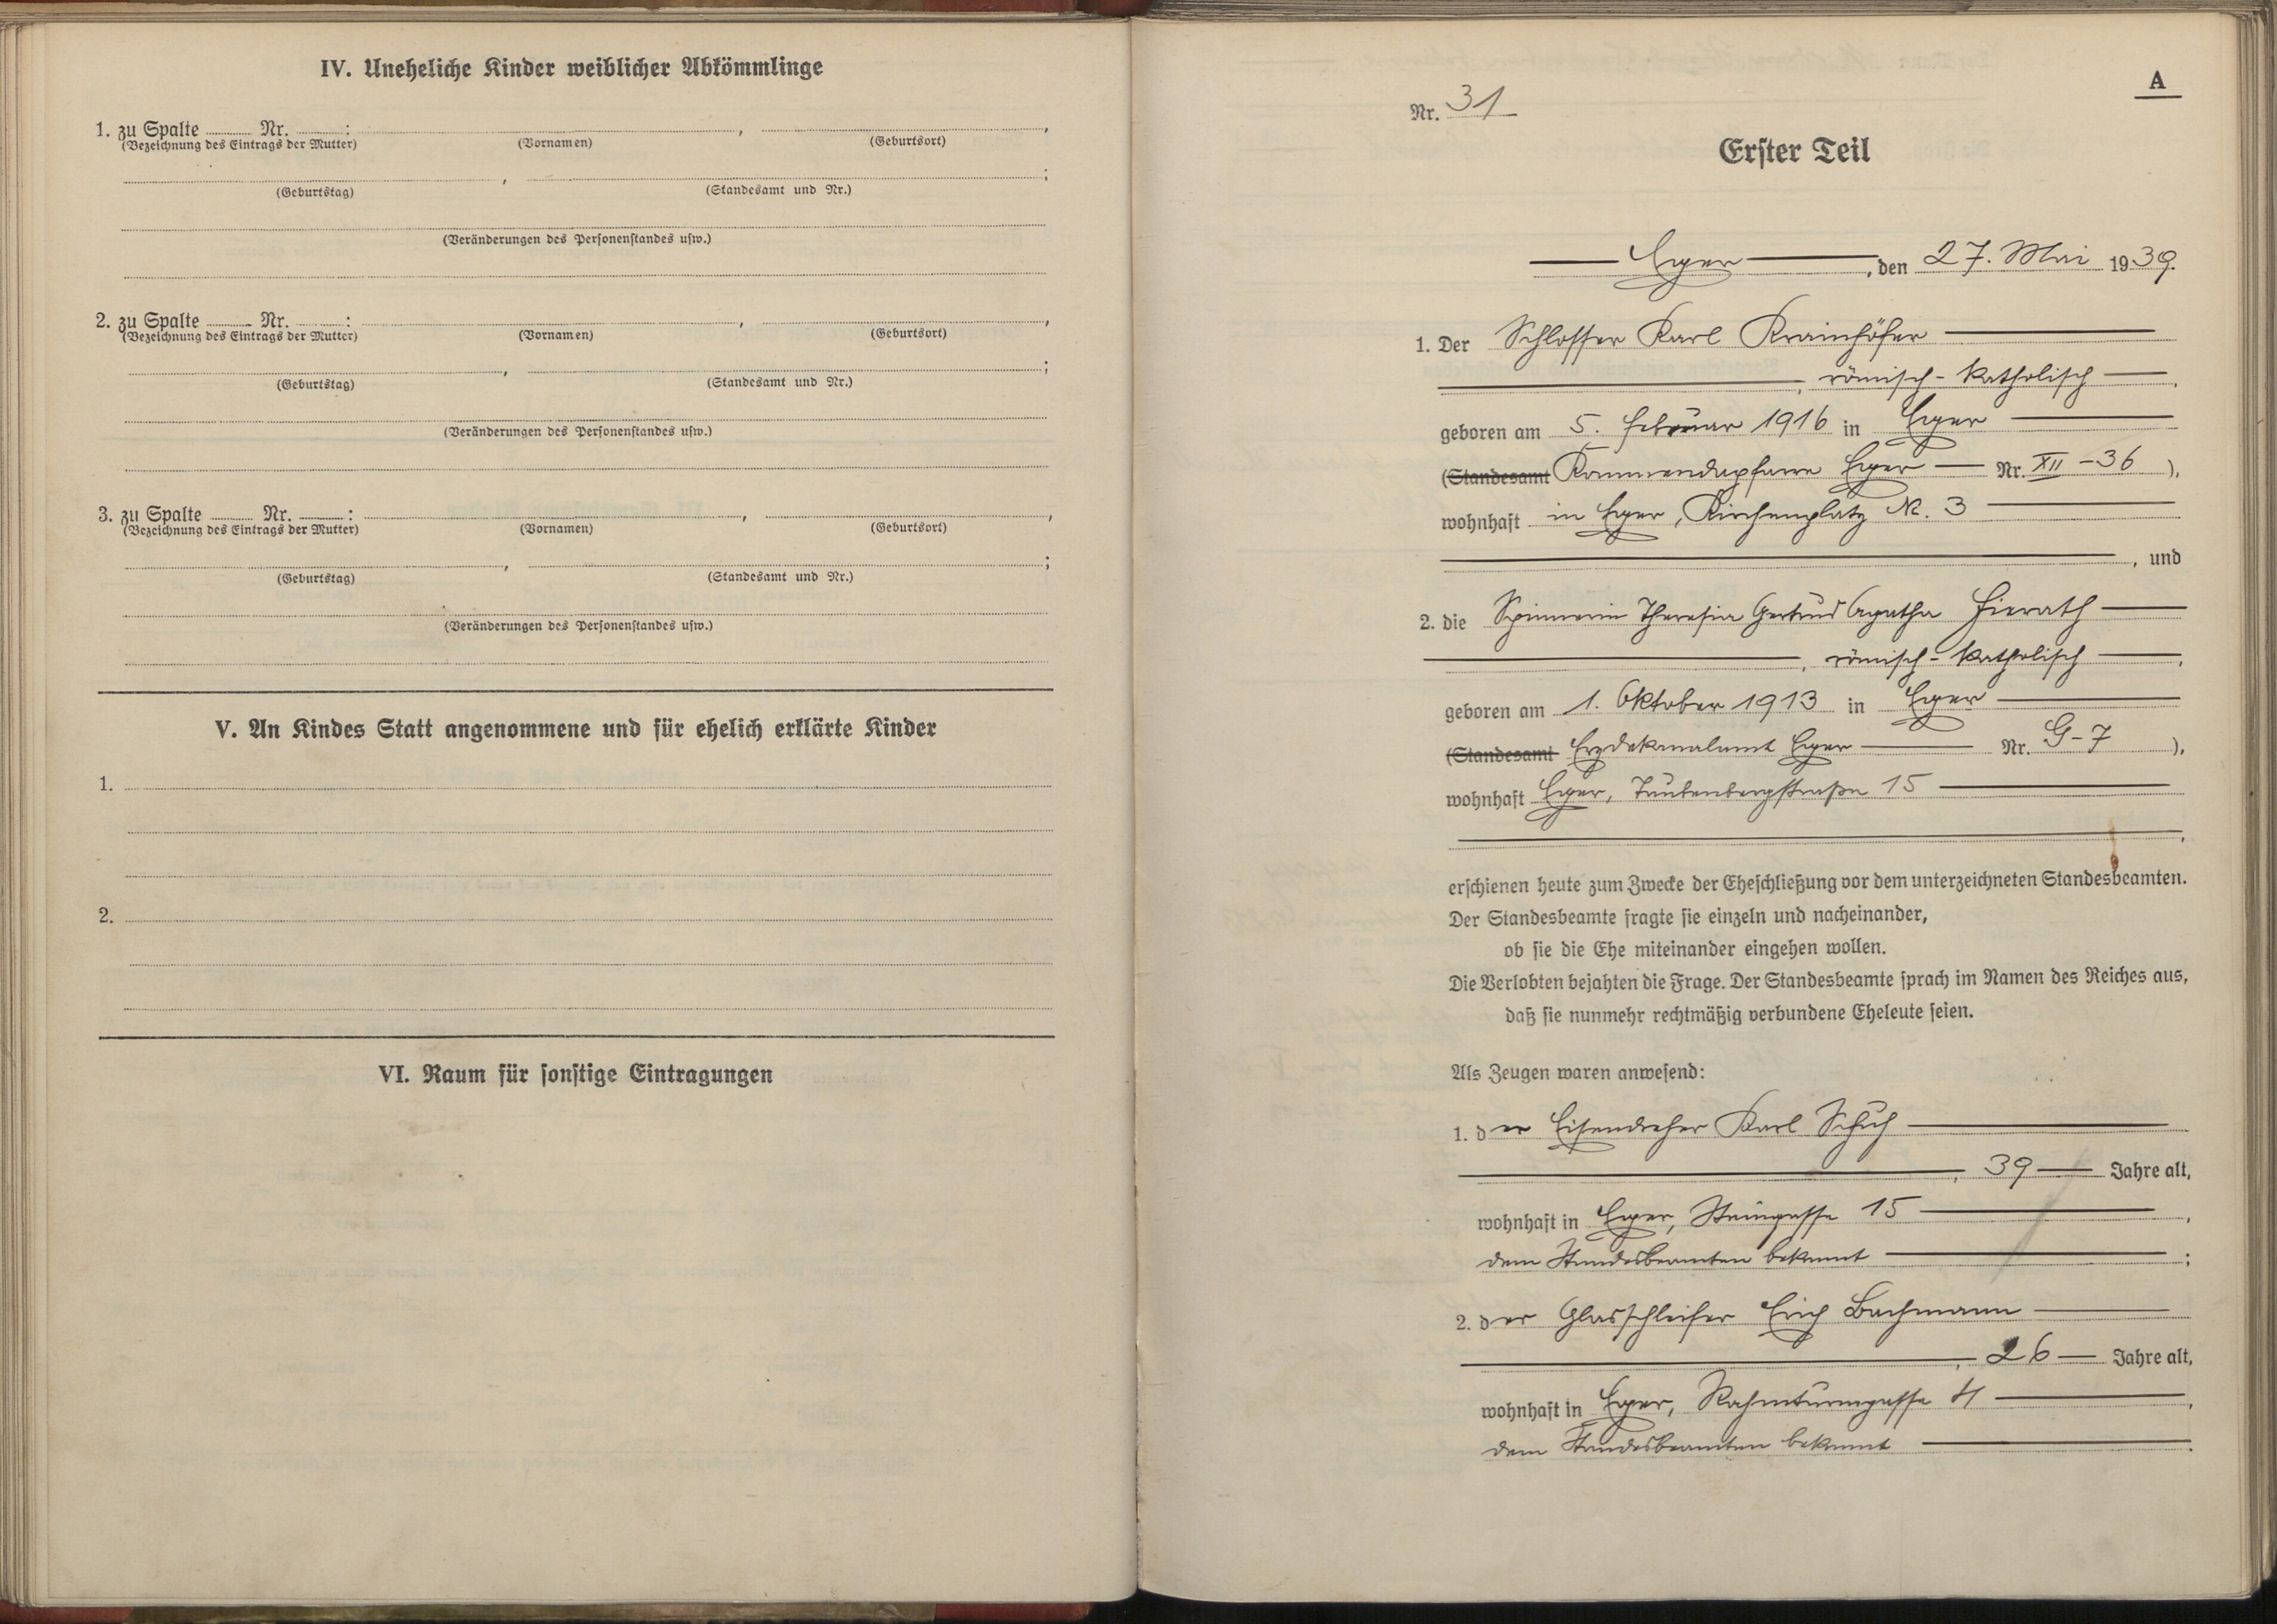 IV. Uneheliche Kinder weiblicher Abkömmlinge
1. zu Spalte ........ Nr. ........ :
(Bezeichnung des Eintrags der Mutter) (Vornamen) (Geburtsort)
(Geburtstag) (Standesamt und Nr.)
(Veränderungen des Personenstandes usw.)
2. zu Spalte ........ Nr. ........ :
(Bezeichnung des Eintrags der Mutter) (Vornamen) (Geburtsort)
(Geburtstag) (Standesamt und Nr.)
(Veränderungen des Personenstandes usw.)
3. zu Spalte ........ Nr. ........ :
(Bezeichnung des Eintrags der Mutter) (Vornamen) (Geburtsort)
(Geburtstag) (Standesamt und Nr.)
(Veränderungen des Personenstandes usw.)
V. An Kindes Statt angenommene und für ehelich erklärte Kinder
1.
2.
VI. Raum für sonstige Eintragungen
A
Nr. 31
Erster Teil
Eger, den 27. Mai 1939.
1. Der Schlosser Karl Krainhöfer
, römisch-katholisch,
geboren am 5. Februar 1916 in Eger
(Standesamt Kommendapfarre Eger Nr. XII - 36),
wohnhaft in Eger, Kirchenplatz Nr. 3
, und
2. die Spinnerin Theresia Gertrud Agatha Hierath
, römisch-katholisch,
geboren am 1. Oktober 1913 in Eger
(Standesamt Erzdekanalamt Eger Nr. G-7),
wohnhaft Eger, Taubenbergstraße 15
,
erschienen heute zum Zwecke der Eheschließung vor dem unterzeichneten Standesbeamten.
Der Standesbeamte fragte sie einzeln und nacheinander,
ob sie die Ehe miteinander eingehen wollen.
Die Verlobten bejahten die Frage. Der Standesbeamte sprach im Namen des Reiches aus,
daß sie nunmehr rechtmäßig verbundene Eheleute seien.
Als Zeugen waren anwesend:
1. der Eisendreher Karl Schuh
, 39 Jahre alt,
wohnhaft in Eger, Steingasse 15,
dem Standesbeamten bekannt;
2. der Glasschleifer Erich Bachmann
, 26 Jahre alt,
wohnhaft in Eger, Rahmturmgasse 4,
dem Standesbeamten bekannt.